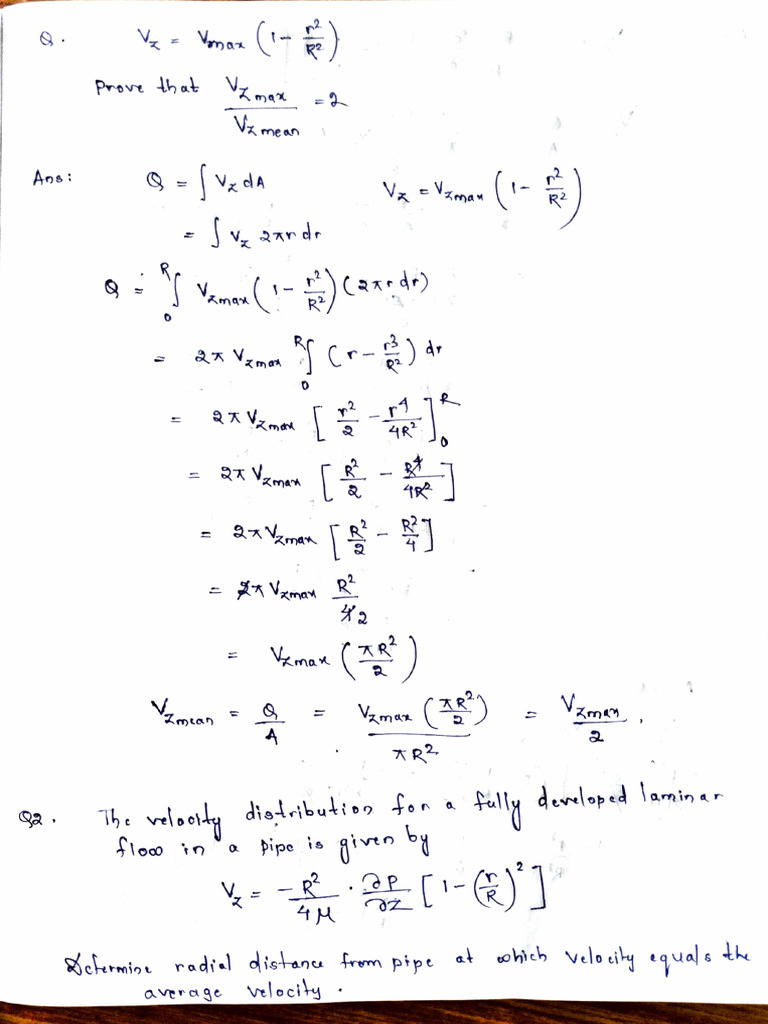 Q. Vz = Vmax (1 - r²/R²)
Prove that Vzmax / Vzmean = 2
Ans: Q = ∫ Vz dA    Vz = Vzmax (1 - r²/R²)
= ∫ Vz 2πr dr
Q = ∫₀ᴿ Vzmax (1 - r²/R²) (2πr dr)
= 2π Vzmax ∫₀ᴿ (r - r³/R²) dr
= 2π Vzmax [r²/2 - r⁴/4R²]₀ᴿ
= 2π Vzmax [R²/2 - R⁴/4R²]
= 2π Vzmax [R²/2 - R²/4]
= 2π Vzmax R²/4 2
= Vzmax (πR²/2)
Vzmean = Q/A = Vzmax (πR²/2) / πR² = Vzmax/2.
Q2. The velocity distribution for a fully developed laminar
flow in a pipe is given by
Vz = -R²/4μ · ∂P/∂Z [1 - (r/R)²]
Determine radial distance from pipe at which velocity equals the
average velocity.